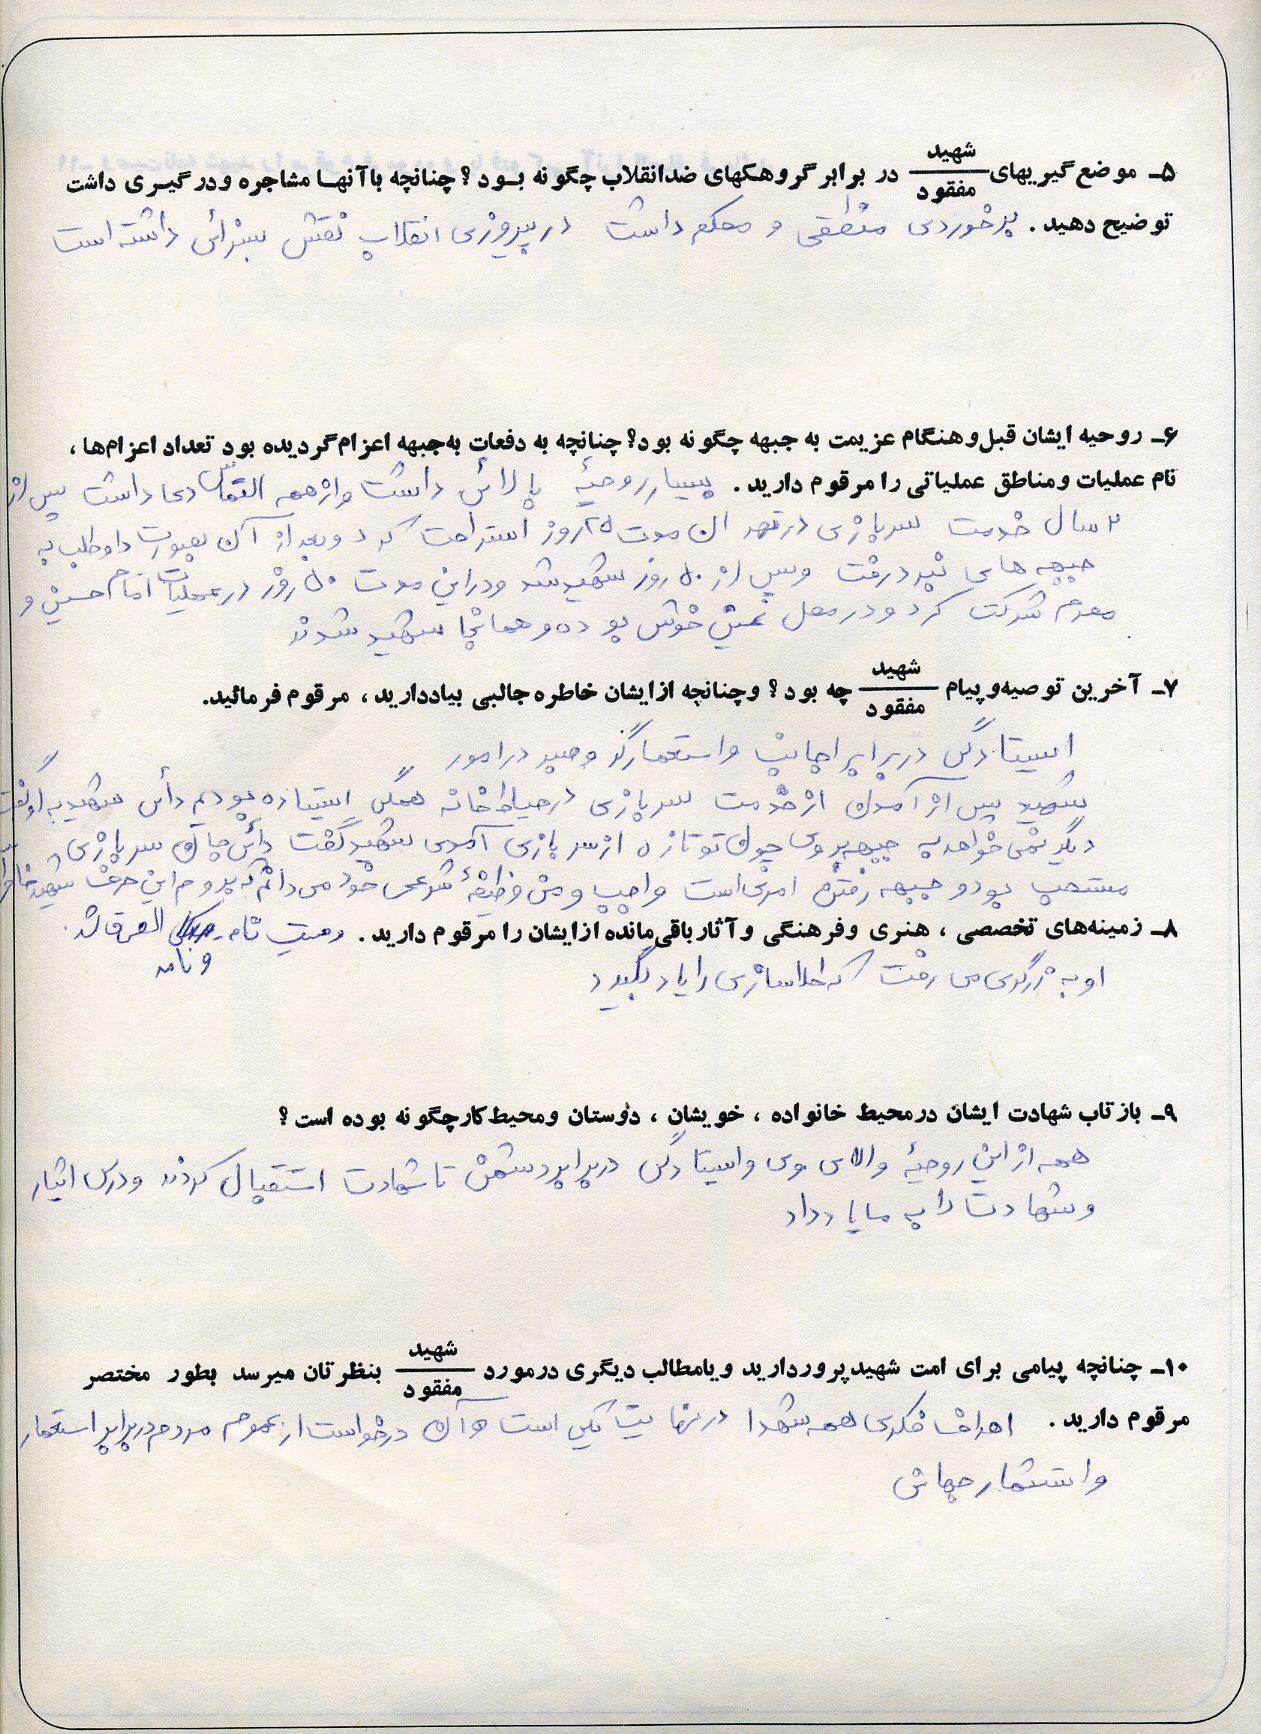 ۵ـ موضع گیریهای شهید / مفقود در برابر گروهکهای ضدانقلاب چگونه بود؟ چنانچه باآنها مشاجره ودرگیری داشت
توضیح دهید. برخوردی منطقی و محکم داشت در پیروزی انقلاب نقش بسزائی داشته است
۶ـ روحیه ایشان قبل وهنگام عزیمت به جبهه چگونه بود؟ چنانچه به دفعات به‌جبهه اعزام گردیده بود تعداد اعزام‌ها،
نام عملیات ومناطق عملیاتی را مرقوم دارید. بسیار روحیهٔ بالائی داشت واز همه التماس دعا داشت پس از
۲ سال خدمت سربازی در مدت ۲۵ روز استراحت کرد و بعد از آن بصورت داوطلب به
جبهه های نبرد رفت و پس از ۵۰ روز شهید شد و در این مدت ۵۰ روز در عملیات امام حسین و
محرم شرکت کرد و در محل خوش بوده و همانجا شهید شدند
۷ـ آخرین توصیه‌وپیام شهید / مفقود چه بود؟ وچنانچه ازایشان خاطره جالبی بیاددارید، مرقوم فرمائید.
ایستادگی در برابر اجانب و استعمارگر و صبر در امور
شهید پس از آمدن از خدمت سربازی در حیاط خانه همگی ایستاده بودیم دائی شهید به او گفت
دیگر نمی خواهد به جبهه بروی چون تو تازه از سربازی آمدی شهید گفت دائی جان سربازی
مستحب بود و جبهه رفتن امری است واجب و من وظیفهٔ شرعی خود می دانم که بروم این حرف شهید
۸ـ زمینه‌های تخصصی، هنری وفرهنگی وآثارباقی‌مانده ازایشان را مرقوم دارید. وصیت نامه
و نامه
او به زرگری می رفت که طلاسازی را یاد بگیرد
۹ـ بازتاب شهادت ایشان درمحیط خانواده، خویشان، دوستان ومحیط کارچگونه بوده است؟
همه از این روحیهٔ والای وی و ایستادگی در برابر دشمن تا شهادت استقبال کردند و درس ایثار
و شهادت را به ما یاد داد
۱۰ـ چنانچه پیامی برای امت شهیدپرورداریدویامطالب دیگری درمورد شهید / مفقود بنظرتان میرسد بطور مختصر
مرقوم دارید. اهداف فکری همه شهدا در نهایت یکی است و آن درخواست از عموم مردم در برابر استعمار
و استثمار جهانی